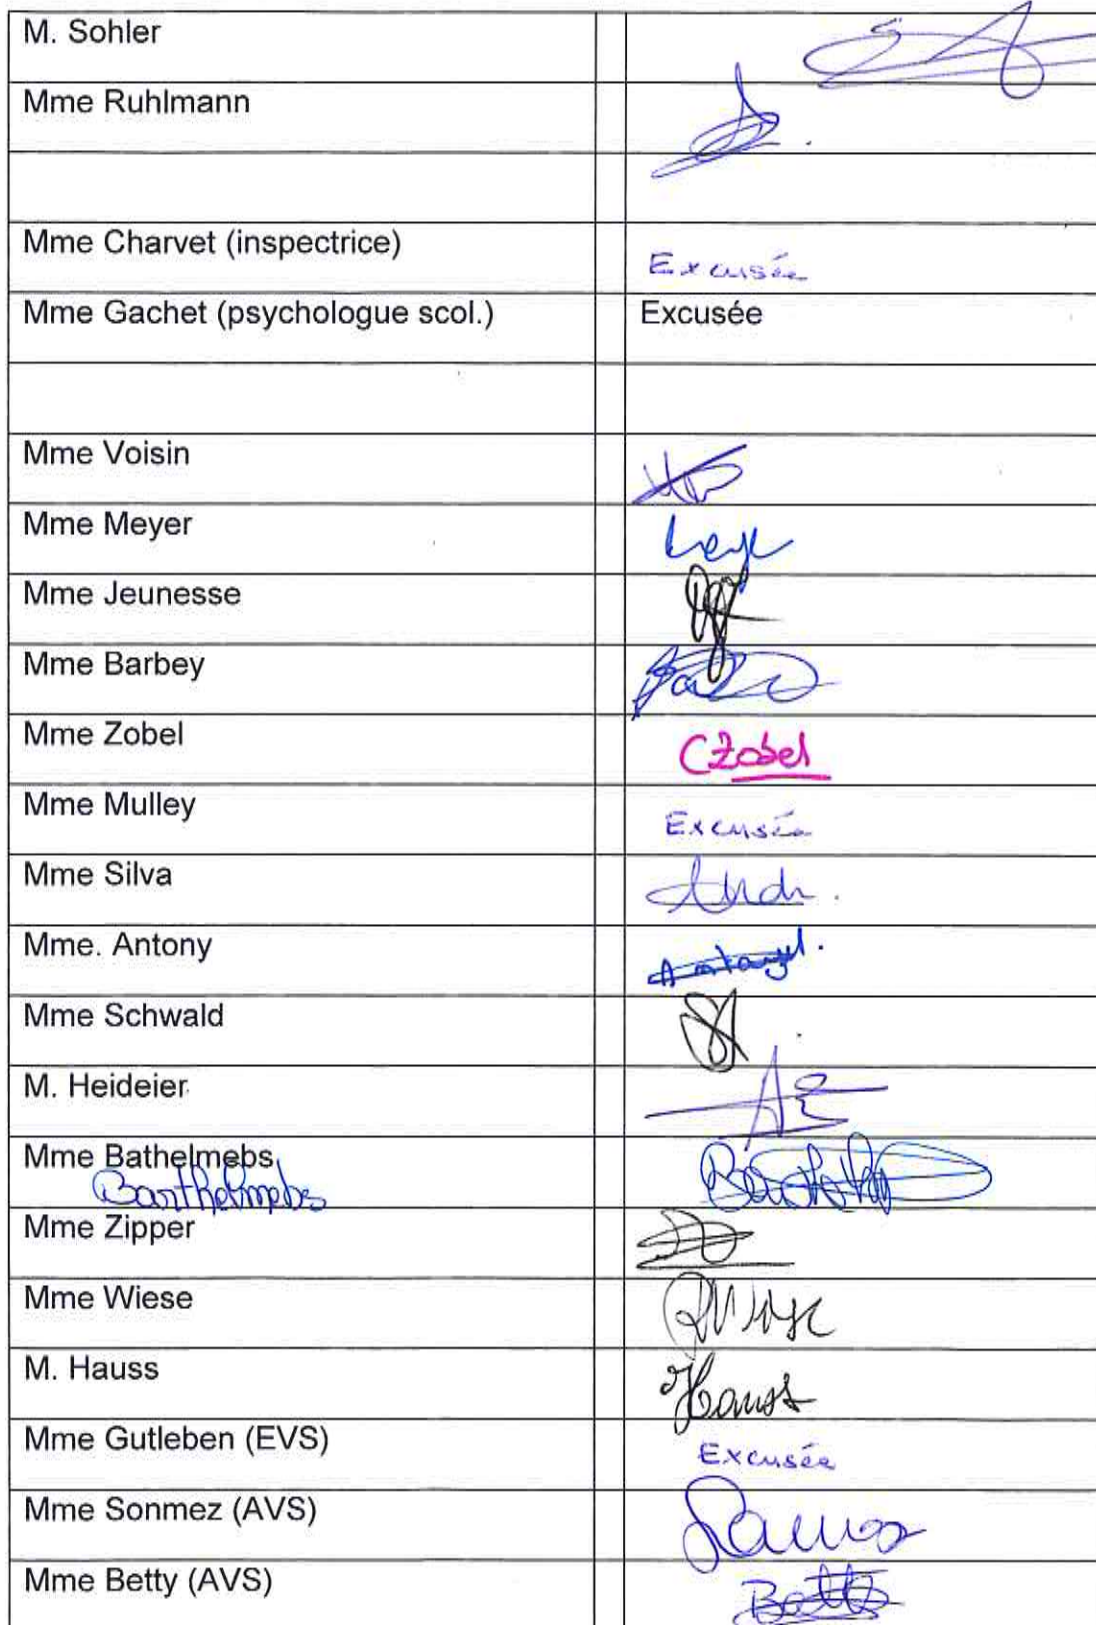 M. Sohler
Mme Ruhlmann
Mme Charvet (inspectrice) Excusée
Mme Gachet (psychologue scol.) Excusée
Mme Voisin
Mme Meyer
Mme Jeunesse
Mme Barbey
Mme Zobel CZobel
Mme Mulley Excusée
Mme Silva
Mme. Antony
Mme Schwald
M. Heideier
Mme Bathelmebs
Barthelmebs
Mme Zipper
Mme Wiese
M. Hauss Hauss
Mme Gutleben (EVS) Excusée
Mme Sonmez (AVS)
Mme Betty (AVS) Betty